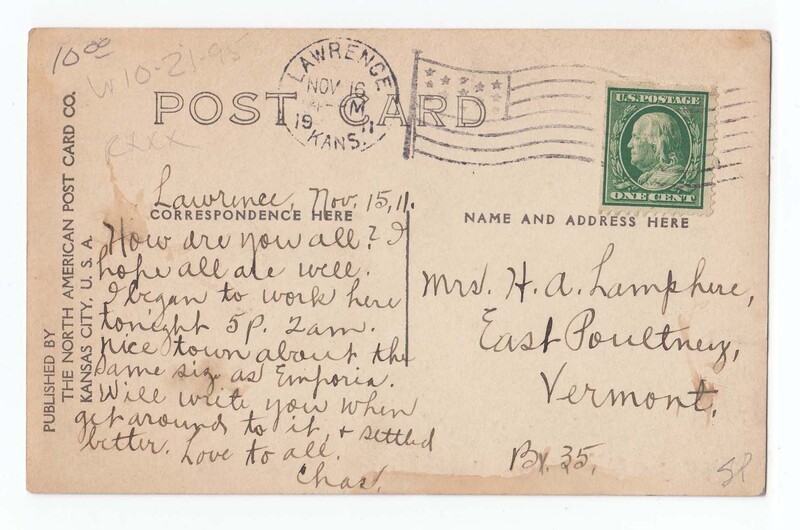 10.00
W10-21-95
RXXX
LAWRENCE
NOV 16
M
19 11
KANS.
POST CARD
U.S. POSTAGE
ONE CENT
PUBLISHED BY
THE NORTH AMERICAN POST CARD CO.
KANSAS CITY, U. S. A.
Lawrence, Nov. 15, 11.
CORRESPONDENCE HERE
How are you all? I
hope all are well.
I began to work here
tonight 5P. 2am.
nice town about the
same siz. as Emporia.
Will write you when
get around to it, & settled
better. Love to all.
Chas.
NAME AND ADDRESS HERE
Mrs. H. A. Lamphere,
East Poultney,
Vermont.
Bx. 35.